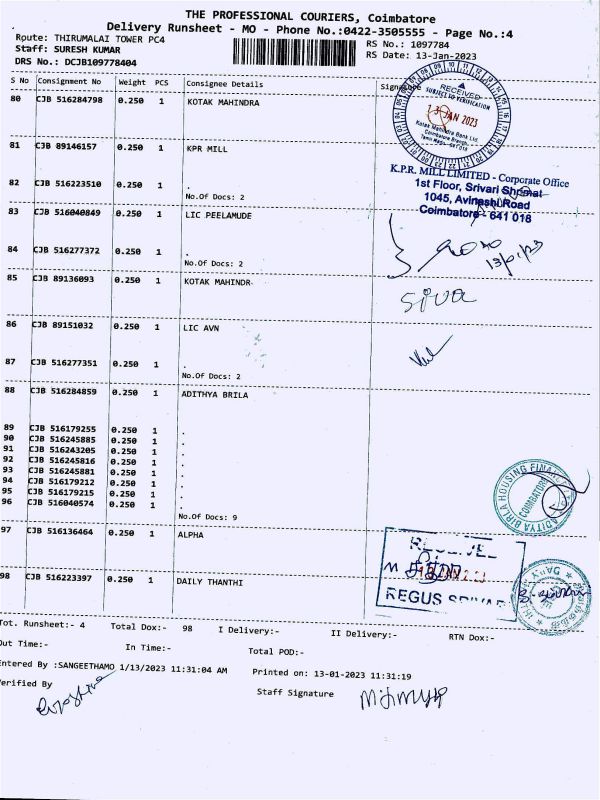 THE PROFESSIONAL COURIERS, Coimbatore
Delivery Runsheet - MO - Phone No.:0422-3505555 - Page No.:4
Route: THIRUMALAI TOWER PC4
Staff: SURESH KUMAR
DRS No.: DCJB109778404
RS No.: 1097784
RS Date: 13-Jan-2023
S No Consignment No Weight PCS Consignee Details Signature
80 CJB 516284798 0.250 1 KOTAK MAHINDRA
RECEIVED
SUBJECT TO VERIFICATION
13 JAN 2023
Kotak Mahindra Bank Ltd
Coimbatore Branch
81 CJB 89146157 0.250 1 KPR MILL
K.P.R. MILL LIMITED - Corporate Office
1st Floor, Srivari Shrimat
1045, Avinashi Road
Coimbatore - 641 018
82 CJB 516223510 0.250 1 .
No.Of Docs: 2
83 CJB 516040849 0.250 1 LIC PEELAMUDE
84 CJB 516277372 0.250 1 .
No.Of Docs: 2
13/01/23
85 CJB 89136093 0.250 1 KOTAK MAHINDR
siva
86 CJB 89151032 0.250 1 LIC AVN
87 CJB 516277351 0.250 1 .
No.Of Docs: 2
88 CJB 516284859 0.250 1 ADITHYA BRILA
89 CJB 516179255 0.250 1 .
90 CJB 516245885 0.250 1 .
91 CJB 516243205 0.250 1 .
92 CJB 516245816 0.250 1 .
93 CJB 516245881 0.250 1 .
94 CJB 516179212 0.250 1 .
95 CJB 516179215 0.250 1 .
96 CJB 516040574 0.250 1 .
No.Of Docs: 9
ADITYA BIRLA HOUSING FINANCE
COIMBATORE
97 CJB 516136464 0.250 1 ALPHA
REGUS
98 CJB 516223397 0.250 1 DAILY THANTHI
Tot. Runsheet:- 4 Total Dox:- 98 I Delivery:- II Delivery:- RTN Dox:-
Out Time:- In Time:- Total POD:-
Entered By :SANGEETHAMO 1/13/2023 11:31:04 AM Printed on: 13-01-2023 11:31:19
Verified By
Staff Signature